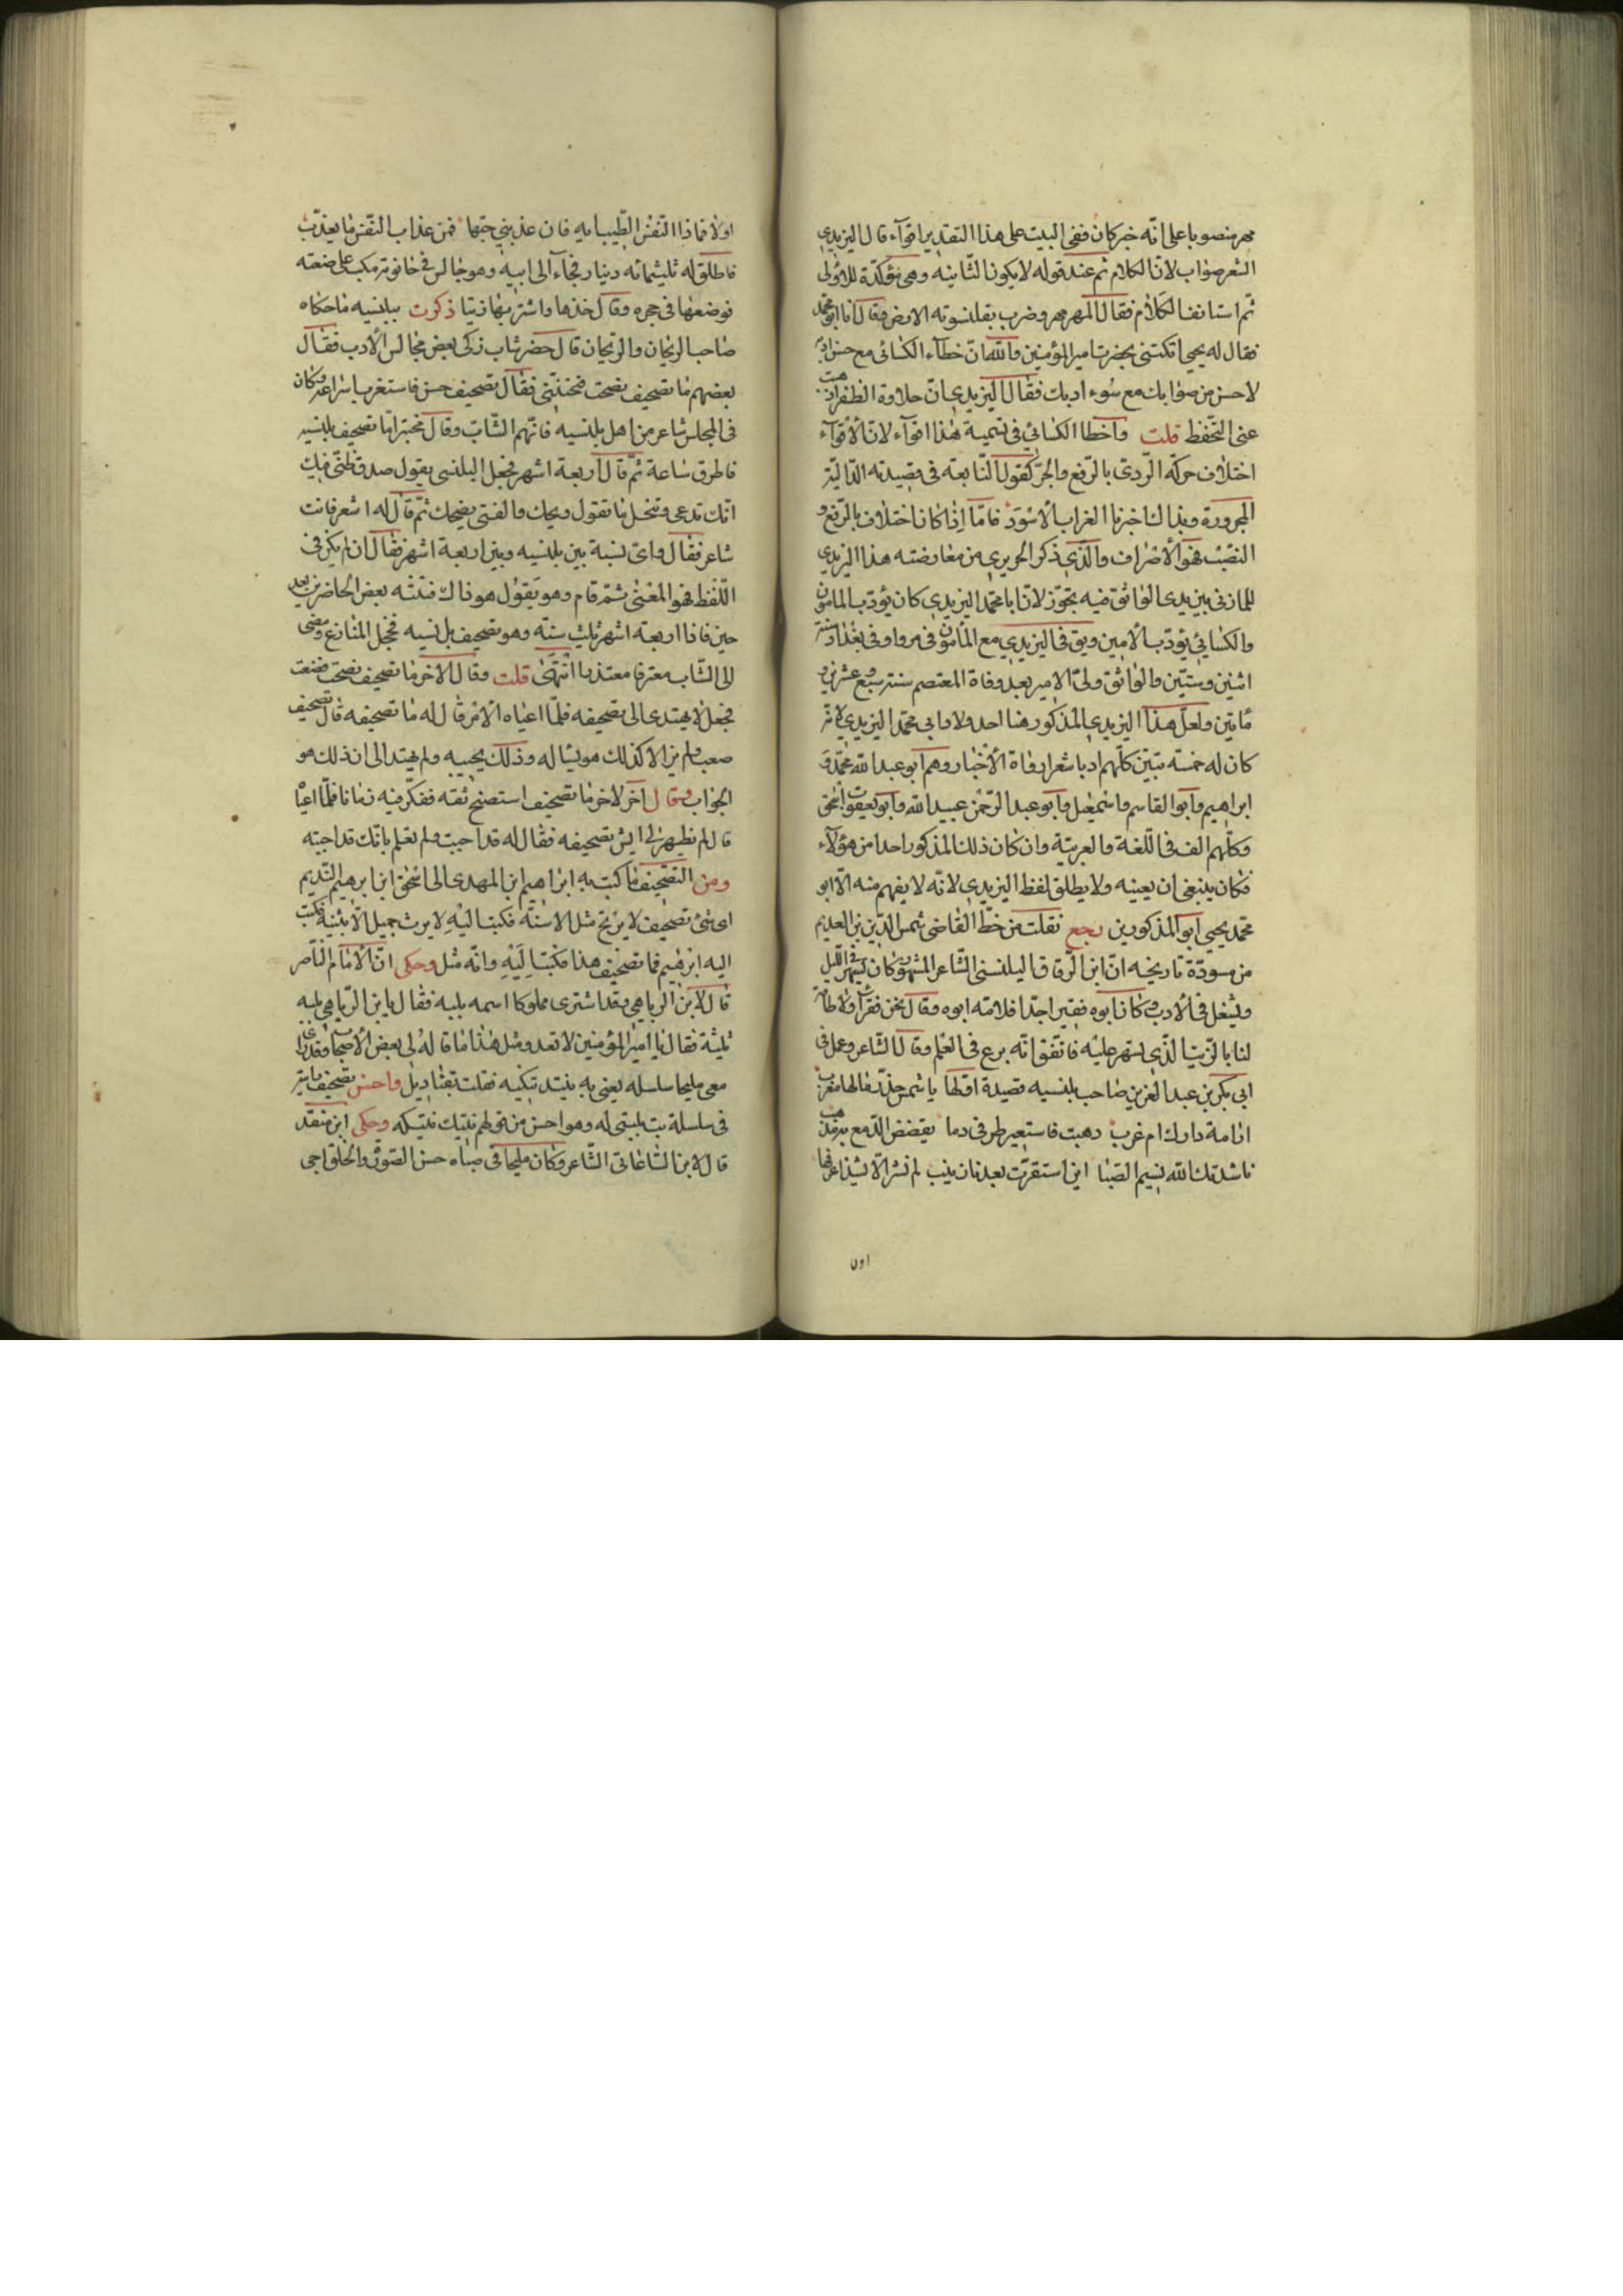 مهر منصوبا على انه خبر كان ففي البيت على هذا التقدير اقوآء قال اليزيدي
الشعر صواب لان الكلام تم عند قوله لا يكون الثانية وهي مؤكدة للاولى
ثم استانف الكلام فقال المهر مهر وضرب بقلنسوته الارض وقال انا ابو محمد
فقال له يحيى اتكتنى بحضرت امير المؤمنين والله ان خطآء الكسائى مع حسن ادبه
لاحسن من صوابك مع سوء ادبك فقال اليزيدي ان حلاوة الظفر اذهبت
عنى التحفظ قلت واخطا الكسائي في تسمية هذا اقوآء لان الاقوآء
اختلاف حركة الروي بالرفع والجر كقول النابغة في قصيدته الدالية
المجرورة وبذاك اخبرنا الغراب الاسود فاما اذا كان اختلاف بالرفع و
النصب فهو الاصراف والذي ذكر الحريري من معارضته هذا اليزيدي
للمازنى بين يدى الواثق فيه تجوز لان ابا محمد اليزيدي كان يؤدب المامون
والكسائي يؤدب الامين وتوفى اليزيدي مع المامون في مرو او في بغداد سنة
اثنين وستين والواثق ولى الامير بعد وفاة المعتصم سنة سبع وعشرين و
مأتين ولعل هذا اليزيدي المذكور هنا احد ولاد ابي محمد اليزيدي لانه
كان له خمسة بنين كلهم ادبا شعرا رواة الاخبار وهم ابو عبد الله محمد و
ابراهيم وابو القاسم واسمعيل وابو عبد الرحمن عبيد الله وابو يعقوب اسحق
وكلهم الف في اللغة والعربية وان كان ذلك المذكور احدا من هؤلآء
فكان ينبغي ان يعينه ولا يطلق لفظ اليزيدي لانه لا يفهم منه الا ابو
محمد يحيى ابو المذكورين رجع نقلت من خط القاضى شمس الدين بن العديم
من مسودة تاريخه ان ابن الزقاق البلنسى الشاعر المشهور كان يسهر في الليل
ويشغل في الادب وكان ابوه فقيرا جدا فلامه ابوه وقال نحن فقرآ ولا طاقة
لنا بالزيت الذي تسهر عليه فاتفق انه برع في العلم وقال الشاعر وعمل في
ابي بكر بن عبد العزيز صاحب بلنسيه قصيدة اولها يا شمس خدر مالها مغرب
ارامة دارك ام غرب ذهبت فاستعبر طرفى دما تفضض الدمع به مذهب
ناشدتك الله نسيم الصبا اين استقرت بعدنا زينب لم نسر الا بشذا عرفها
اولا
اولا فماذا النفس الطيب ايه فان عذبني حبها فمن عذاب النفس ما يعذب
فاطلق له ثلثمائه دينار فجآء الى ابيه وهو جالس في حانوته مكب على صنعته
فوضعها في حجره وقال خذها واشتر بها زيتا ذكرت ببلنسيه ما حكاه
صاحب الريحان والريحان قال حضر شاب زكى بعض مجالس الادب فقال
بعضهم ما تصحيف نصحت فخنتنى فقال تصحيف حسن فاستغرب اسراعه وكان
في المجلس شاعر من اهل بلنسيه فاتهم الشاب وقال مختبرا ما تصحيف بلنسيه
فاطرق ساعة ثم قال اربعة اشهر فجعل البلنسى يقول صدق ظنى فيك
انك تدعى وتنحل ما تقول ويحك والفتى يضحك ثم قال له اشعر فانت
شاعر فقال واى نسبة بين بلنسيه وبين اربعة اشهر فقال ان لم يكن في
اللفظ فهو المعنى ثم قام وهو يقول هو ذاك فنبه بعض الحاضرين بعد
حين فاذا اربعة اشهر ثلث سنة وهو تصحيف بلنسيه فخجل المنازع ومضى
الى الشاب معترفا معتذرا انتهى قلت وقال الاخر ما تصحيف نصحت فضعت
فجعل لا يهتدى الى تصحيفه فلما اعياه الامر قال له ما تصحيفه قال تصحيف
صعب ولم يزل كذلك هو يسأله وذلك يجيبه ولم يهتد الى ان ذلك هو
الجواب وقال آخر لاخر ما تصحيف استنصح ثقه ففكر فيه زمانا فلما اعيا
قال لم يظهر لي ايش تصحيفه فقال له قد اجبت ولم تعلم بانك قد اجبته
ومن التصحيف ما كتب به ابراهيم ابن المهدى الى اسحق ابن ابرهيم النديم
اى شئ تصحيف لا يرنج مثل الاسنة فكتب اليه لا يرث جميل الا بثينة فكتب
اليه ابرهيم فما تصحيف هذا فكتب اليه وانه مثل وحكى ان الامام الناصر
قال لابن الرباهي وقد اشترى مملوكا اسمه بلبه فقال يا ابن الرباهي بلبه
ثلثة فقال يا امير المؤمنين لا تعد ومثل هذا ما قاله لى بعض الاصحاب وقد راى
معى مليحا سلسله يعنى به فقلت واحسن تصحيف ما يتر
في سلسلة بيت وهو احسن من قولهم وحكى ابن منقذ
قال لابن الساعاتى الشاعر وكان مليحا في صباه حسن الصورة والخلق اجى